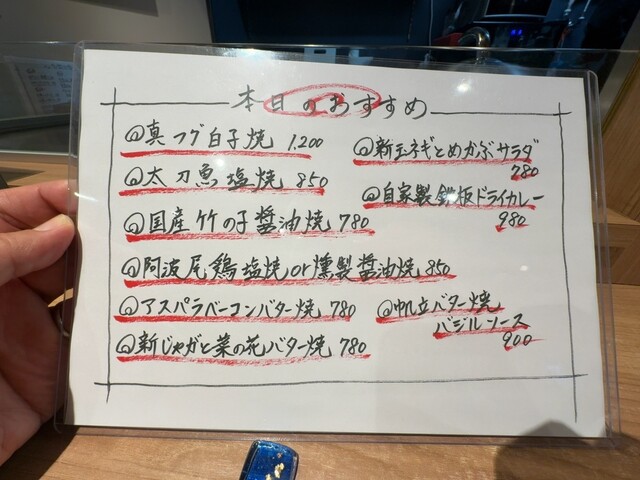 本日のおすすめ
@真フグ白子焼 1.200
@太刀魚塩焼 850
@国産竹の子醤油焼 780
@阿波尾鶏塩焼or燻製醤油焼 850
@アスパラベーコンバター焼 780
@新じゃがと菜の花バター焼 780
@新玉ネギとめかぶサラダ
780
@自家製鉄板ドライカレー
980
@帆立バター焼
バジルソース
900